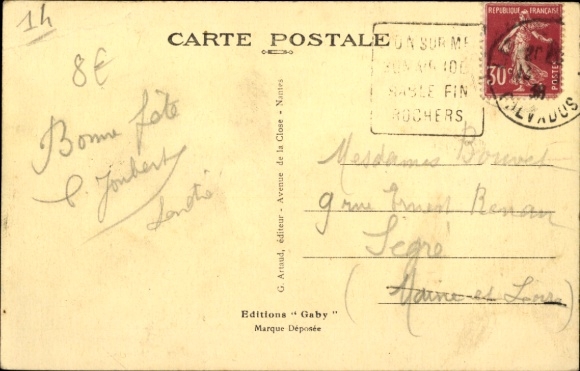 14
CARTE POSTALE
8€
SUR M
SABLE FIN
ROCHERS
REPUBLIQUE FRANÇAISE
30c
POSTES
CALVADOS
Bonne fête
Joubert
G. Artaud, éditeur - Avenue de la Close - Nantes
Mesdames Bouvet
9 rue Ernest Renan
Segré
(Maine et Loire)
Editions "Gaby"
Marque Déposée